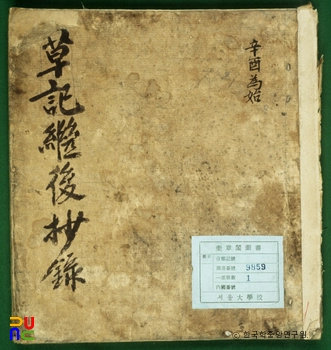 草記繼後抄錄
辛酉為始
奎章閣圖書
9859
1
서울大學校
한국학중앙연구원